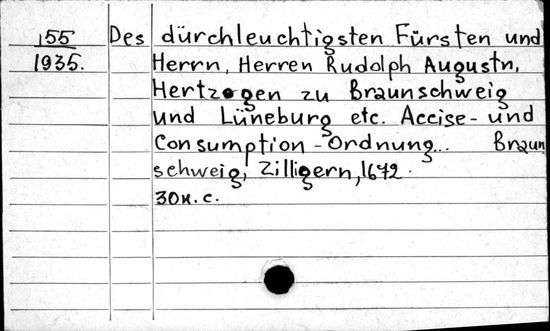 155 Des dürchleuchtigsten Fürsten und
1935. Herrn, Herren Rudolph Augustn,
Hertzogen zu Braunschweig
und Lüneburg etc. Accise- und
Consumption-Ordnung... Braun
schweig, Zilligern, 1672.
30н.с.